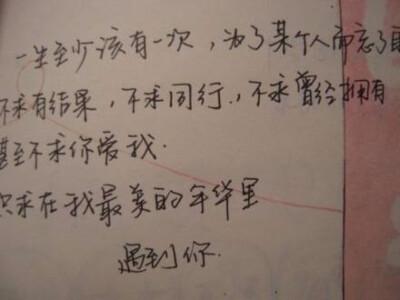 一生至少该有一次，为了某个人而忘了
不求有结果，不求同行，不求曾经拥有
甚至不求你爱我.
只求在我最美的年华里
遇到你.